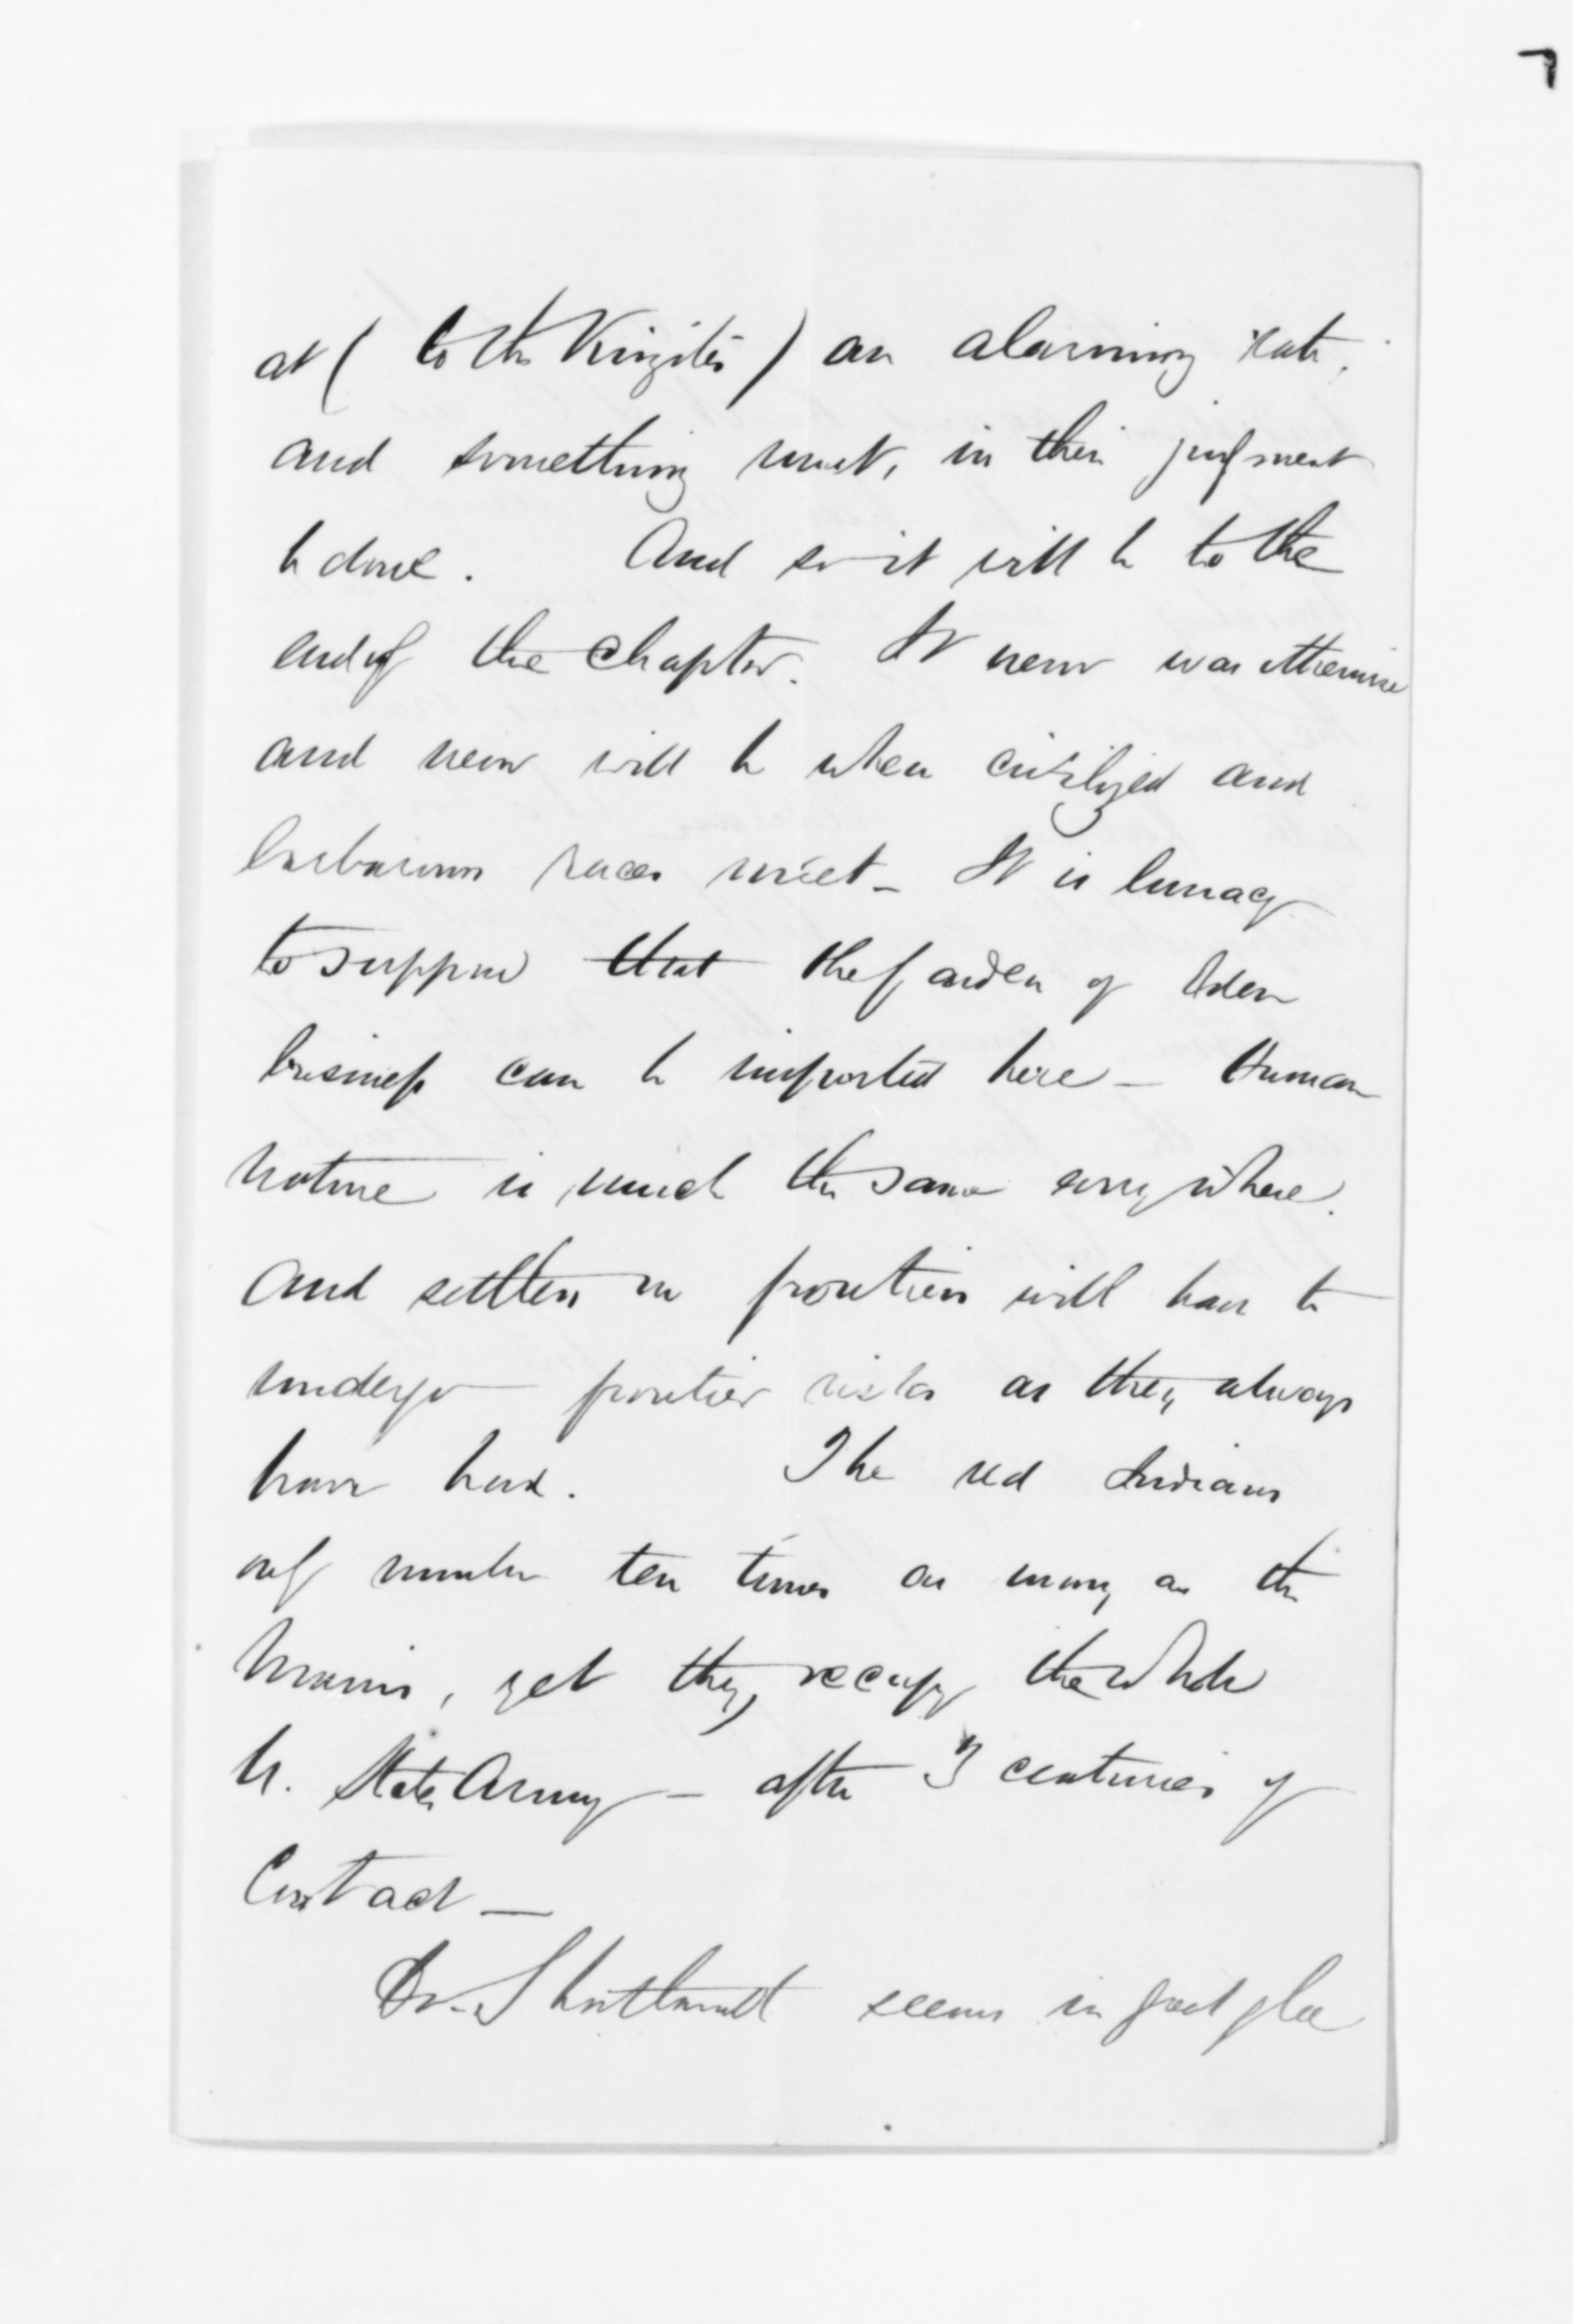 at (to the Kingites) an alarming rate,
and something must, in their judgment
be done. And so it will be to the
end of the chapter. It never was otherwise
and never will be when civilized and
barbarous races meet _ It is lunacy
to suppose that the garden of Eden
business can be imported here _ Human
nature is much the same everywhere.
And settlers on frontiers will have to
undergo frontier risks as they always
have had. The red Indians
only number ten times as many as the
Maoris, yet they occupy the whole
U. States Army _ after 3 centuries of
Contact _
Dr. Shortland seems in great glee